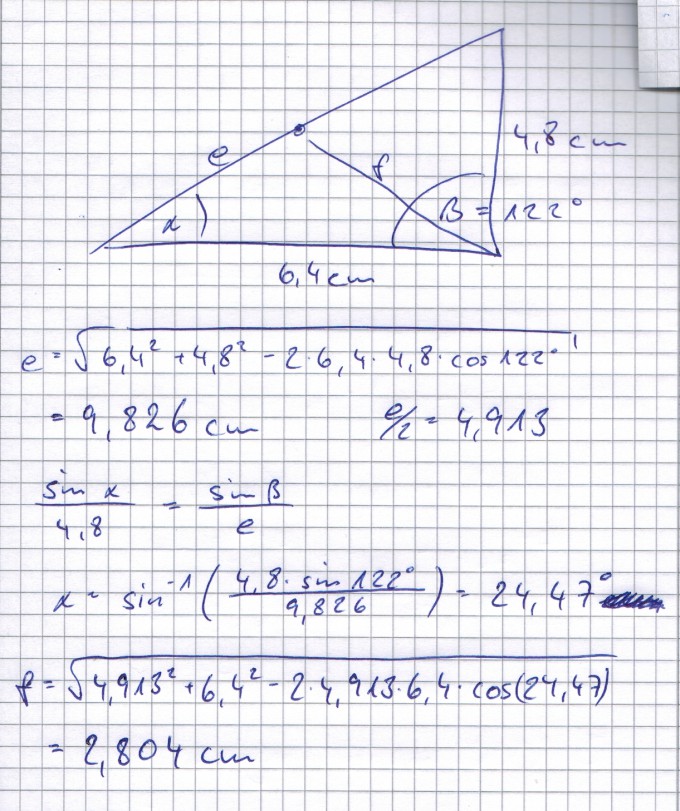 4,8 cm
e
f
α
β = 122°
6,4 cm
e = √(6,4² + 4,8² - 2·6,4·4,8·cos 122°)
= 9,826 cm e/2 = 4,913
sin α / 4,8 = sin β / e
α = sin⁻¹ (4,8·sin 122° / 9,826) = 24,47°
f = √(4,913² + 6,4² - 2·4,913·6,4·cos(24,47))
= 2,804 cm